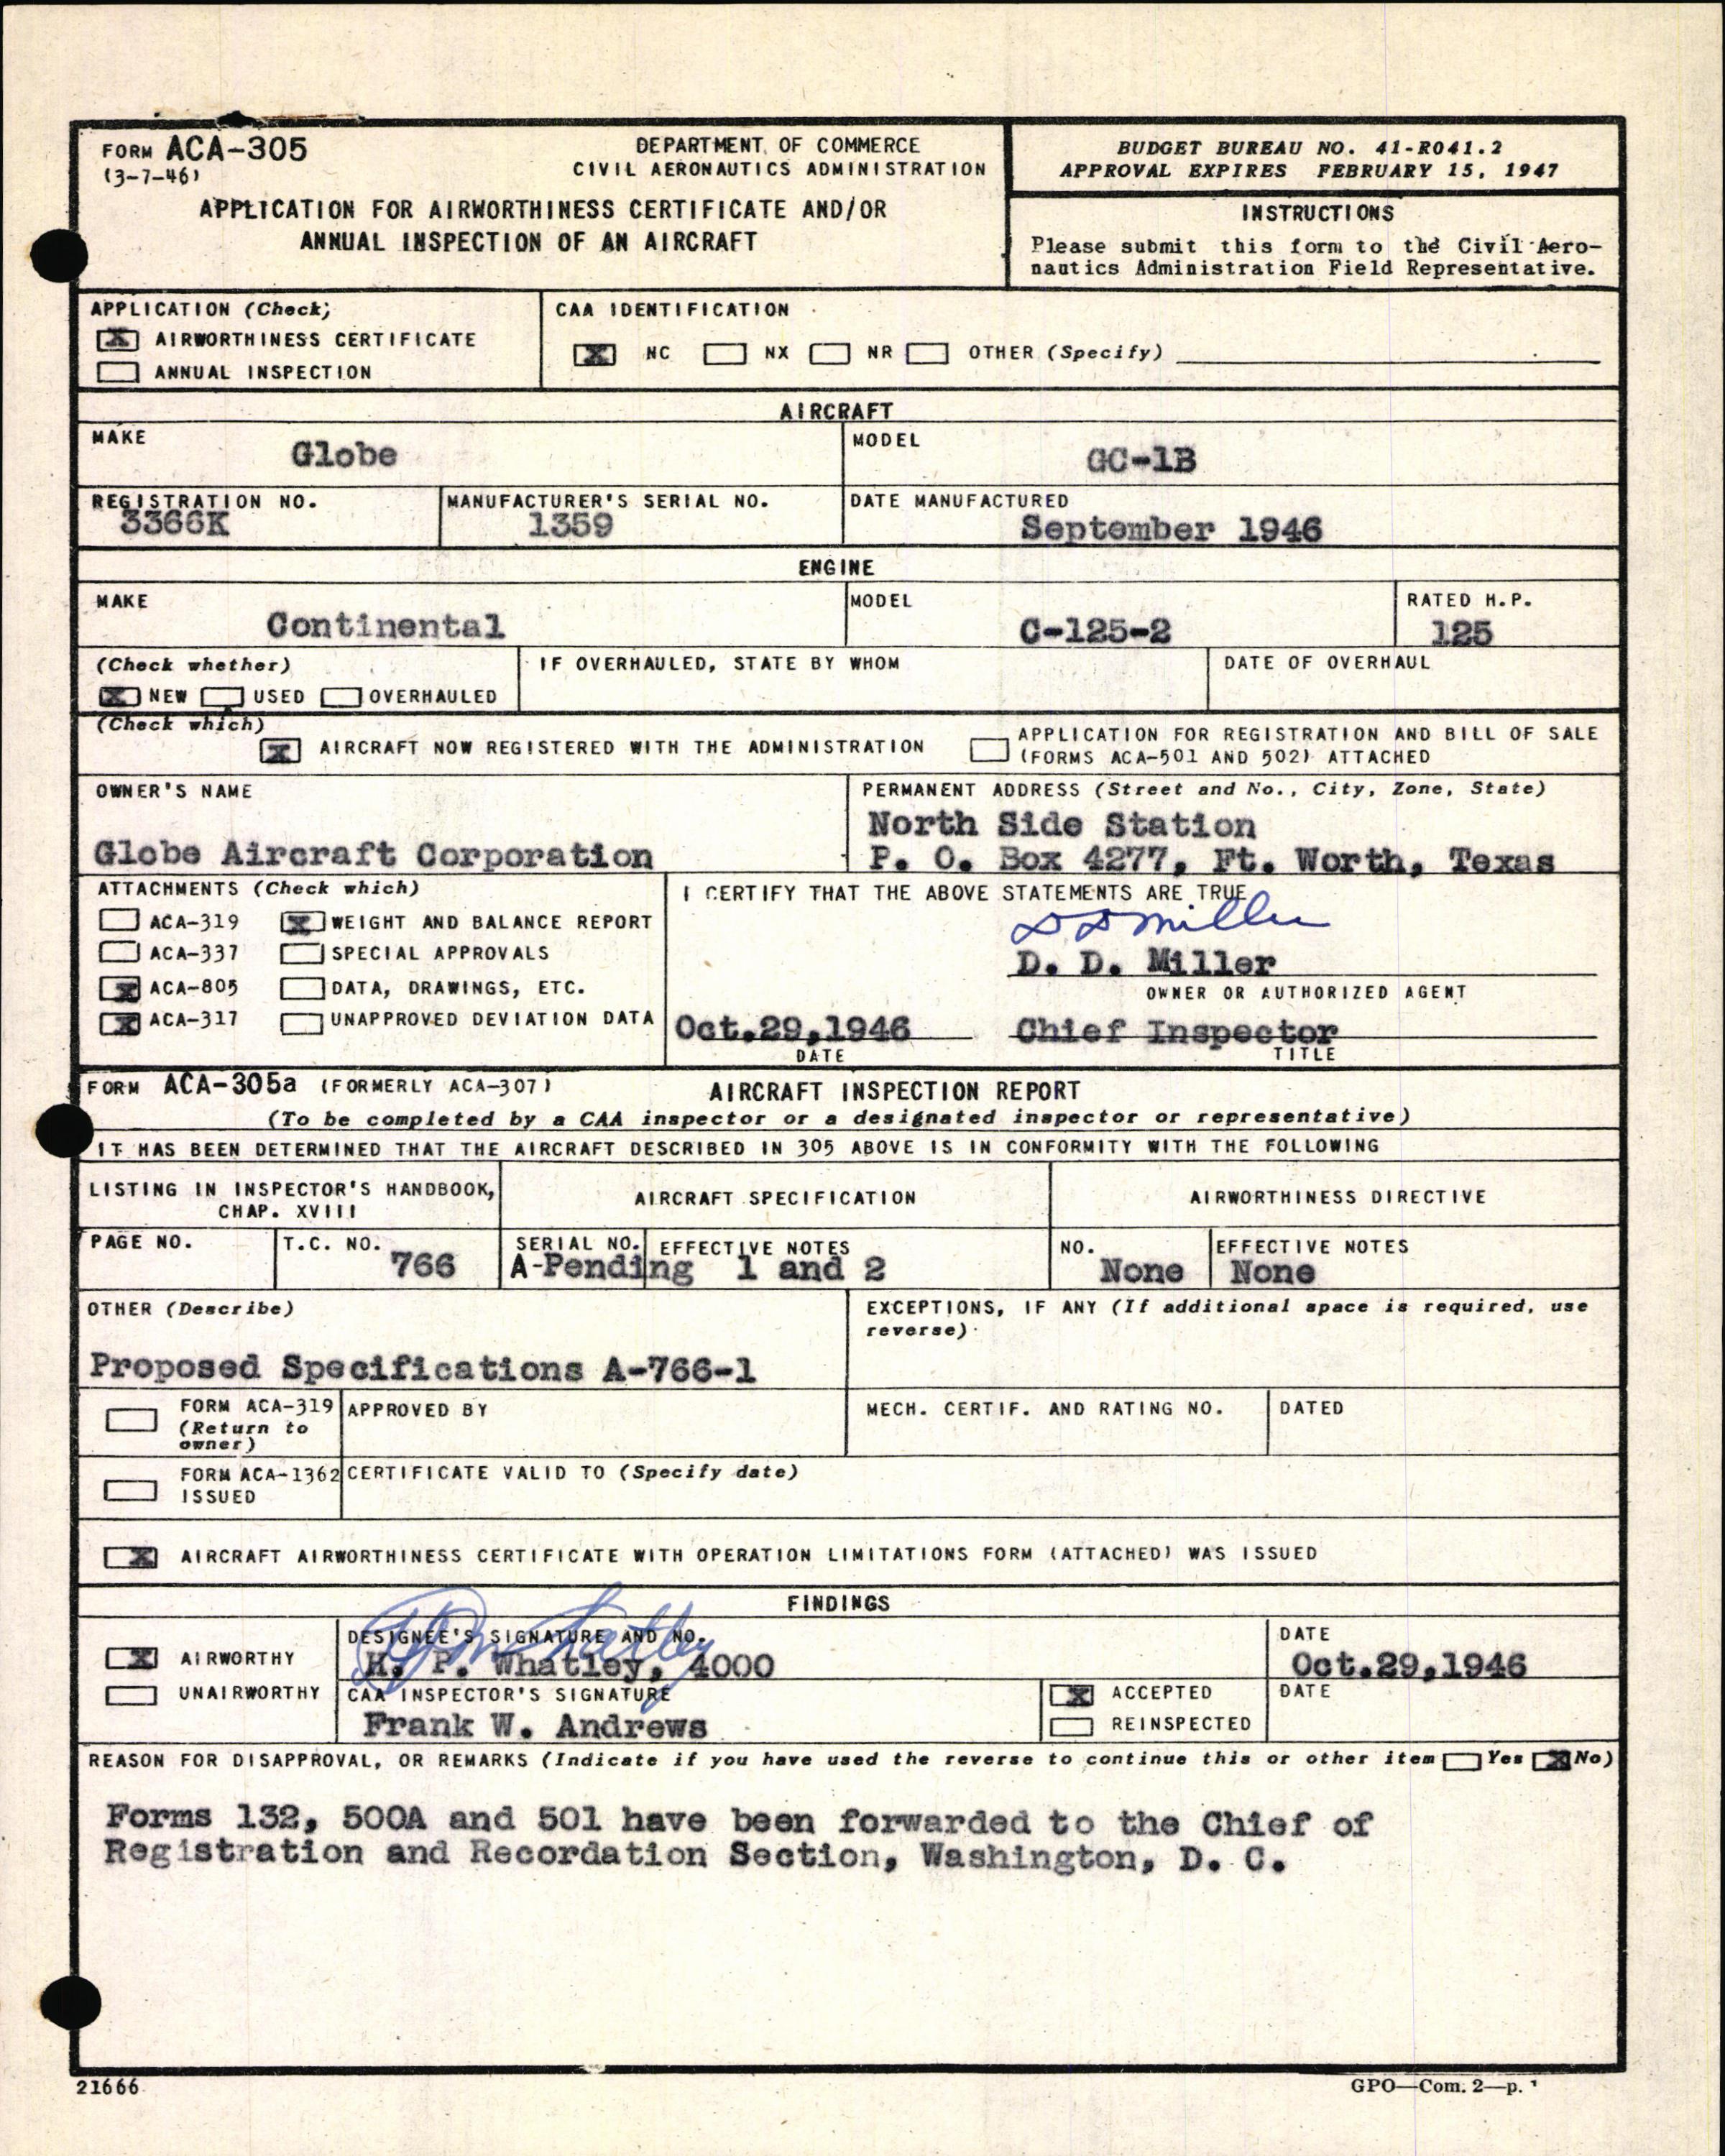 FORM ACA-305
(3-7-46)
DEPARTMENT OF COMMERCE
CIVIL AERONAUTICS ADMINISTRATION
APPLICATION FOR AIRWORTHINESS CERTIFICATE AND/OR
ANNUAL INSPECTION OF AN AIRCRAFT
BUDGET BUREAU NO. 41-R041.2
APPROVAL EXPIRES FEBRUARY 15, 1947
INSTRUCTIONS
Please submit this form to the Civil Aero-
nautics Administration Field Representative.
APPLICATION (Check)
X AIRWORTHINESS CERTIFICATE
ANNUAL INSPECTION
CAA IDENTIFICATION
X NC NX NR OTHER (Specify)
AIRCRAFT
MAKE
Globe
MODEL
GC-1B
REGISTRATION NO.
3366K
MANUFACTURER'S SERIAL NO.
1359
DATE MANUFACTURED
September 1946
ENGINE
MAKE
Continental
MODEL
C-125-2
RATED H.P.
125
(Check whether)
X NEW USED OVERHAULED
IF OVERHAULED, STATE BY WHOM
DATE OF OVERHAUL
(Check which)
X AIRCRAFT NOW REGISTERED WITH THE ADMINISTRATION
APPLICATION FOR REGISTRATION AND BILL OF SALE
(FORMS ACA-501 AND 502) ATTACHED
OWNER'S NAME
Globe Aircraft Corporation
PERMANENT ADDRESS (Street and No., City, Zone, State)
North Side Station
P. O. Box 4277, Ft. Worth, Texas
ATTACHMENTS (Check which)
ACA-319 X WEIGHT AND BALANCE REPORT
ACA-337 SPECIAL APPROVALS
X ACA-805 DATA, DRAWINGS, ETC.
X ACA-317 UNAPPROVED DEVIATION DATA
I CERTIFY THAT THE ABOVE STATEMENTS ARE TRUE
D D Miller
D. D. Miller
OWNER OR AUTHORIZED AGENT
Oct.29,1946 Chief Inspector
DATE TITLE
FORM ACA-305a (FORMERLY ACA-307) AIRCRAFT INSPECTION REPORT
(To be completed by a CAA inspector or a designated inspector or representative)
IT HAS BEEN DETERMINED THAT THE AIRCRAFT DESCRIBED IN 305 ABOVE IS IN CONFORMITY WITH THE FOLLOWING
LISTING IN INSPECTOR'S HANDBOOK,
CHAP. XVIII
AIRCRAFT SPECIFICATION
AIRWORTHINESS DIRECTIVE
PAGE NO.
T.C. NO.
766
SERIAL NO. EFFECTIVE NOTES
A-Pending 1 and 2
NO.
None
EFFECTIVE NOTES
None
OTHER (Describe)
Proposed Specifications A-766-1
EXCEPTIONS, IF ANY (If additional space is required, use
reverse)
FORM ACA-319
(Return to
owner)
APPROVED BY
MECH. CERTIF. AND RATING NO.
DATED
FORM ACA-1362
ISSUED
CERTIFICATE VALID TO (Specify date)
X AIRCRAFT AIRWORTHINESS CERTIFICATE WITH OPERATION LIMITATIONS FORM (ATTACHED) WAS ISSUED
FINDINGS
X AIRWORTHY
UNAIRWORTHY
DESIGNEE'S SIGNATURE AND NO.
H. P. Whatley
H. P. Whatley, 4000
DATE
Oct.29,1946
CAA INSPECTOR'S SIGNATURE
Frank W. Andrews
X ACCEPTED
REINSPECTED
DATE
REASON FOR DISAPPROVAL, OR REMARKS (Indicate if you have used the reverse to continue this or other item Yes X No)
Forms 132, 500A and 501 have been forwarded to the Chief of
Registration and Recordation Section, Washington, D. C.
21666
GPO—Com. 2—p.